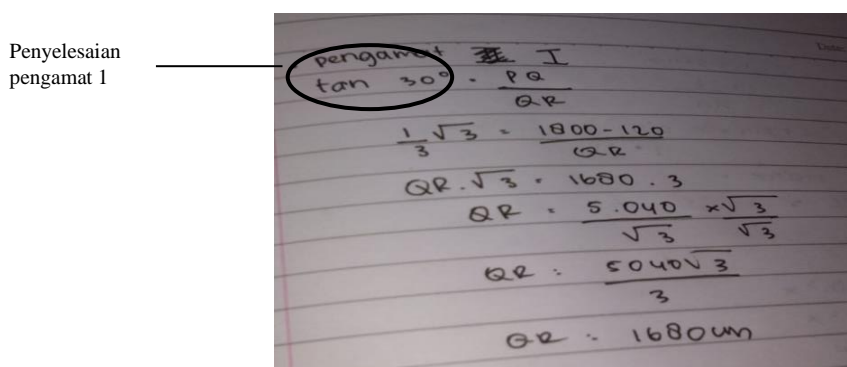 Penyelesaian
pengamat 1
pengamat I
tan 30° = PQ / QR
1/3 √3 = 1800 - 120 / QR
QR . √3 = 1680 . 3
QR = 5.040 / √3 × √3 / √3
QR = 5040√3 / 3
QR = 1680 cm